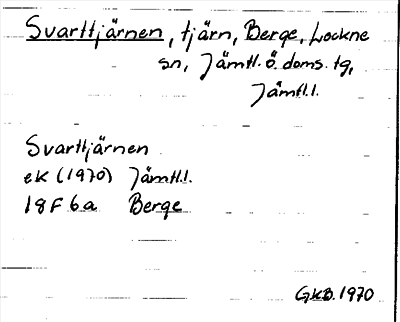 Svarttjärnen, tjärn, Berge, Lockne
sn, Jämtl. ö. doms. tg,
Jämtl.l.
Svarttjärnen
ek (1970) Jämtl.l.
18F 6a Berge
GKB. 1970